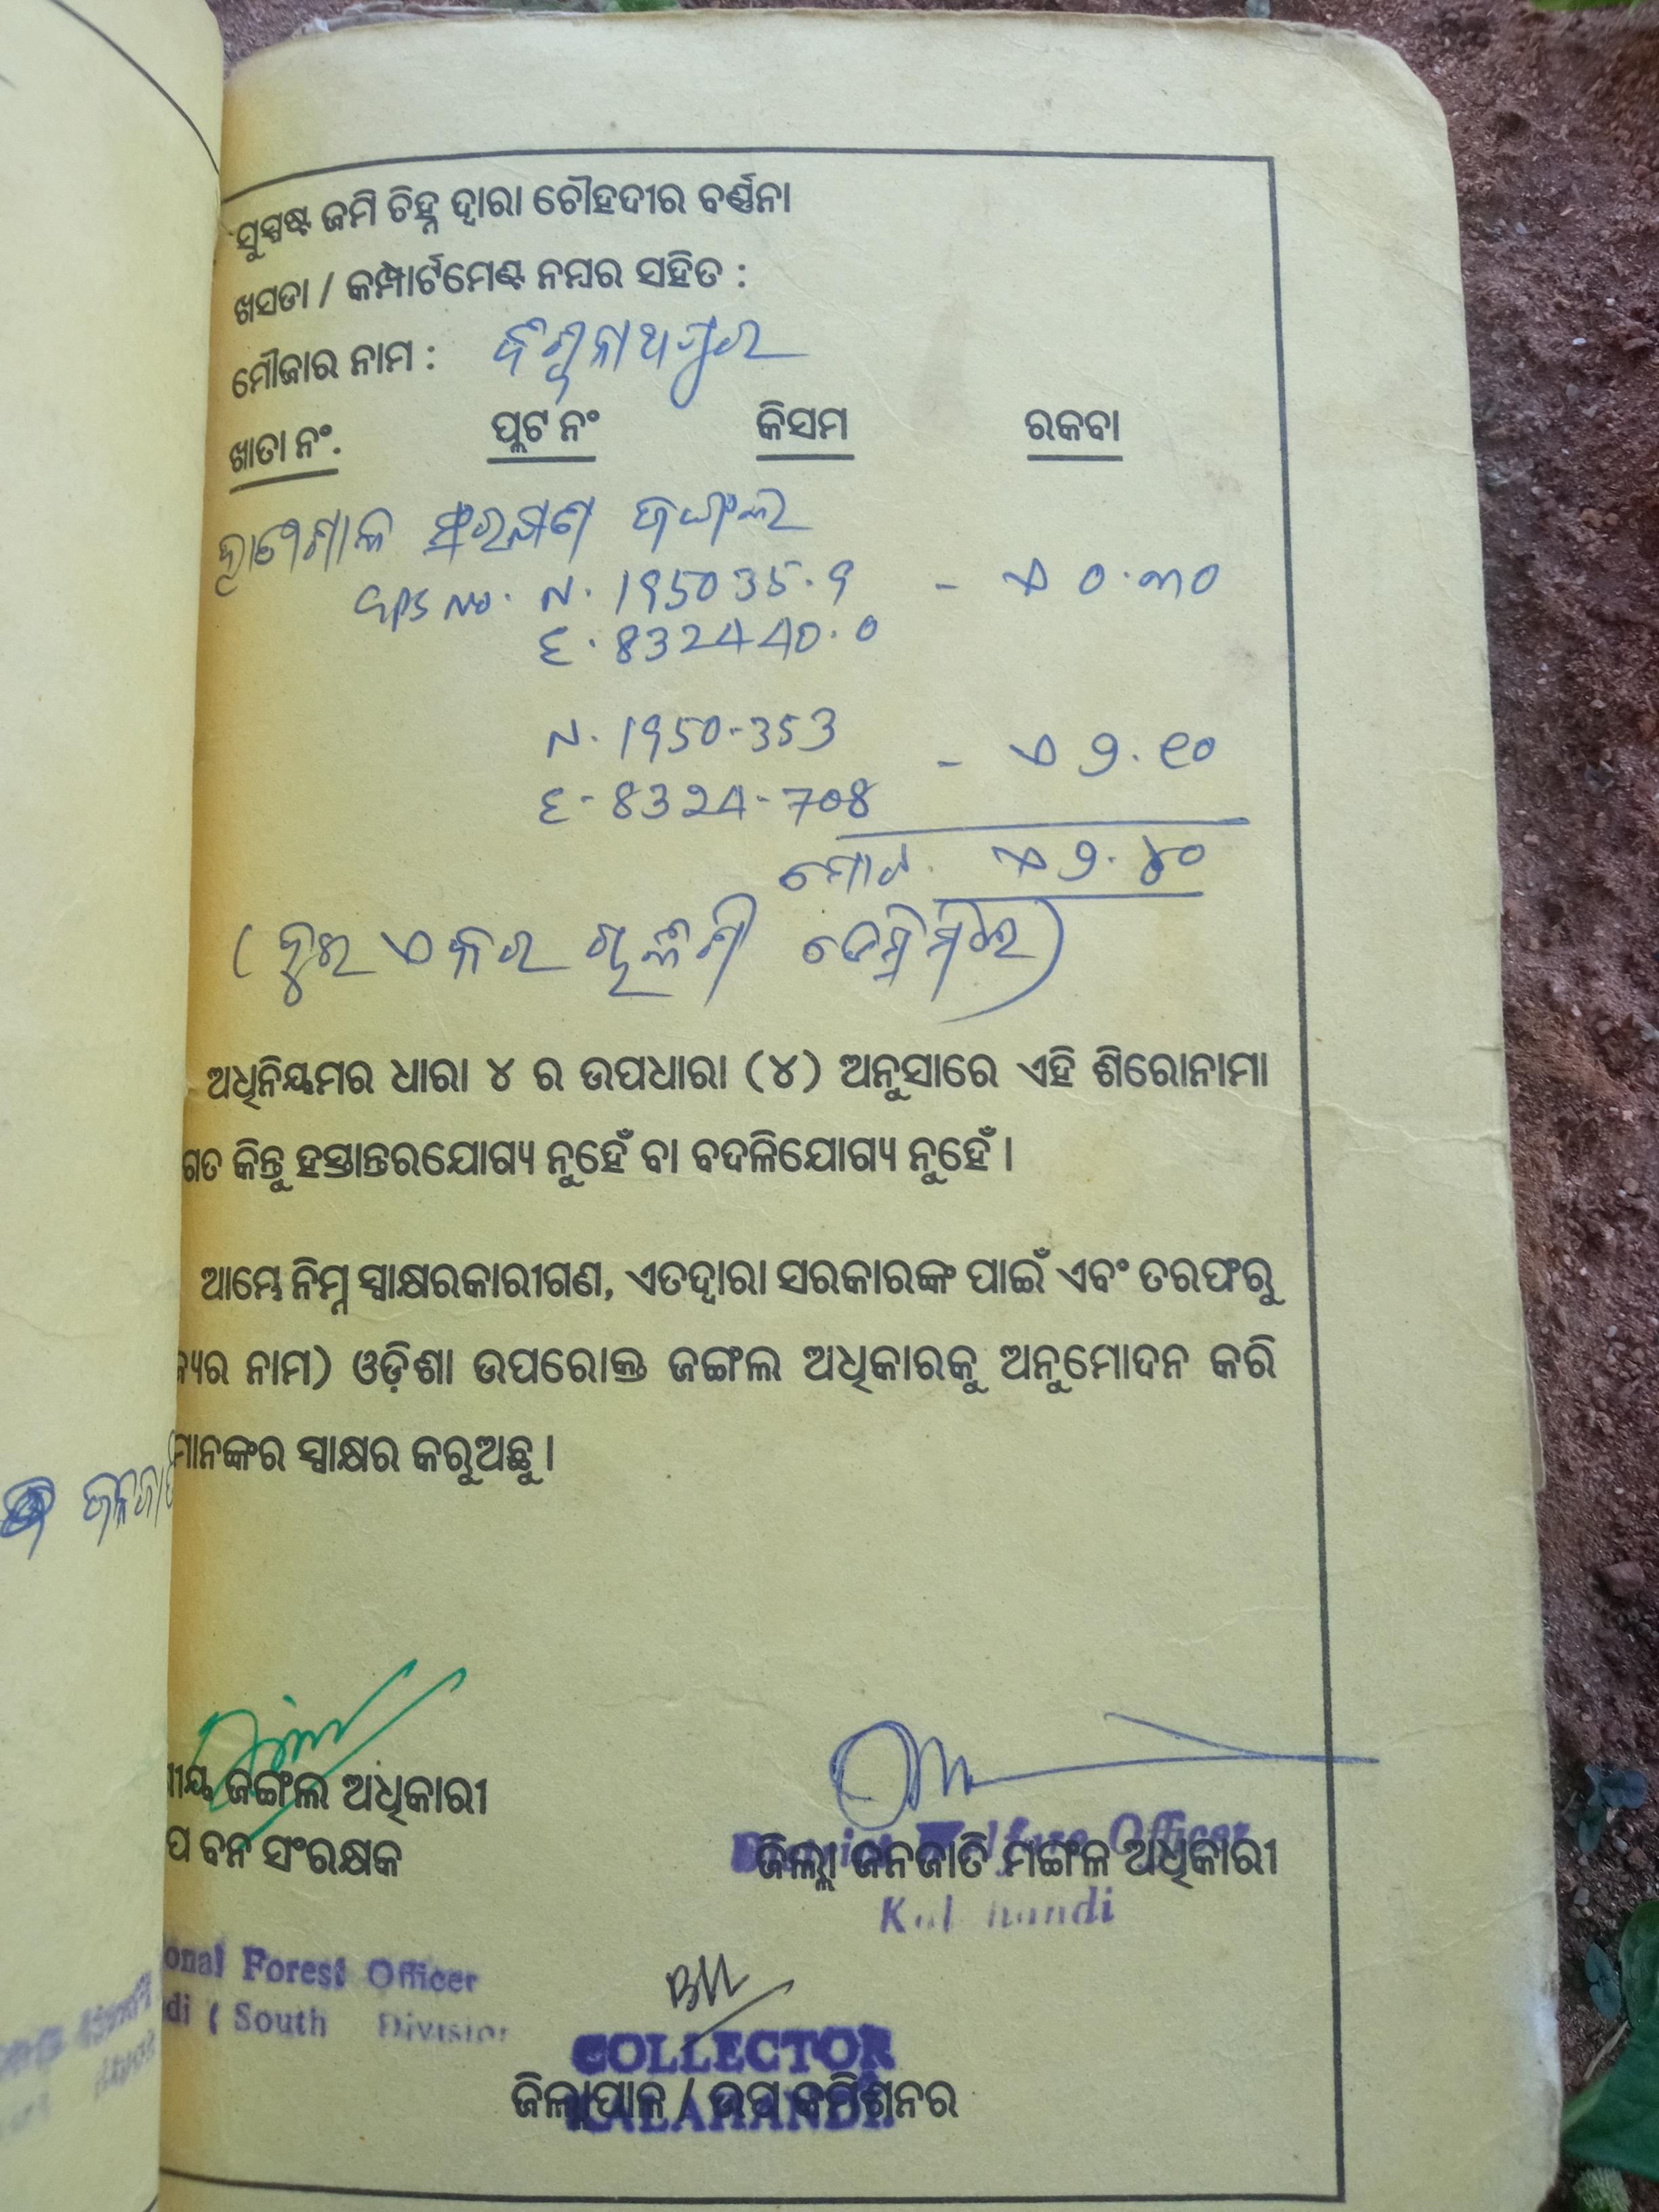 ସୁସ୍ପଷ୍ଟ ଜମି ଚିହ୍ନ ଦ୍ୱାରା ଚୌହଦୀର ବର୍ଣ୍ଣନା
ଖସଡା / କମ୍ପାର୍ଟମେଣ୍ଟ ନମ୍ବର ସହିତ :
ମୌଜାର ନାମ : ବିଶ୍ୱନାଥପୁର
ଖାତା ନଂ. ପ୍ଲଟ ନଂ କିସମ ରକବା
ସଂରକ୍ଷଣ ଜଙ୍ଗଲ
GPS No. N. 195035.9 - ଏ ୦.୩୦
E. 832440.0
N. 1950-353
E- 8324-708 - ଏ ୨.୧୦
ମୋଟ. ଏ ୨.୪୦
(ଦୁଇ ଏକର ଚାଳିଶି ଡେସିମିଲ)
ଅଧିନିୟମର ଧାରା ୪ ର ଉପଧାରା (୪) ଅନୁସାରେ ଏହି ଶିରୋନାମା
ଗତ କିନ୍ତୁ ହସ୍ତାନ୍ତରଯୋଗ୍ୟ ନୁହେଁ ବା ବଦଳିଯୋଗ୍ୟ ନୁହେଁ ।
ଆମ୍ଭେ ନିମ୍ନ ସ୍ୱାକ୍ଷରକାରୀଗଣ, ଏତଦ୍ୱାରା ସରକାରଙ୍କ ପାଇଁ ଏବଂ ତରଫରୁ
ଜ୍ୟର ନାମ) ଓଡ଼ିଶା ଉପରୋକ୍ତ ଜଙ୍ଗଲ ଅଧିକାରକୁ ଅନୁମୋଦନ କରି
ମାନଙ୍କର ସ୍ୱାକ୍ଷର କରୁଅଛୁ ।
ଗୀୟ ଜଙ୍ଗଲ ଅଧିକାରୀ
ପ ବନ ସଂରକ୍ଷକ
District Welfare Officer
ଜିଲ୍ଲା ଜନଜାତି ମଙ୍ଗଳ ଅଧିକାରୀ
Kalahandi
onal Forest Officer
di (South Division
COLLECTOR
ଜିଲ୍ଲାପାଳ / ଉପ କମିଶନର
KALAHANDI